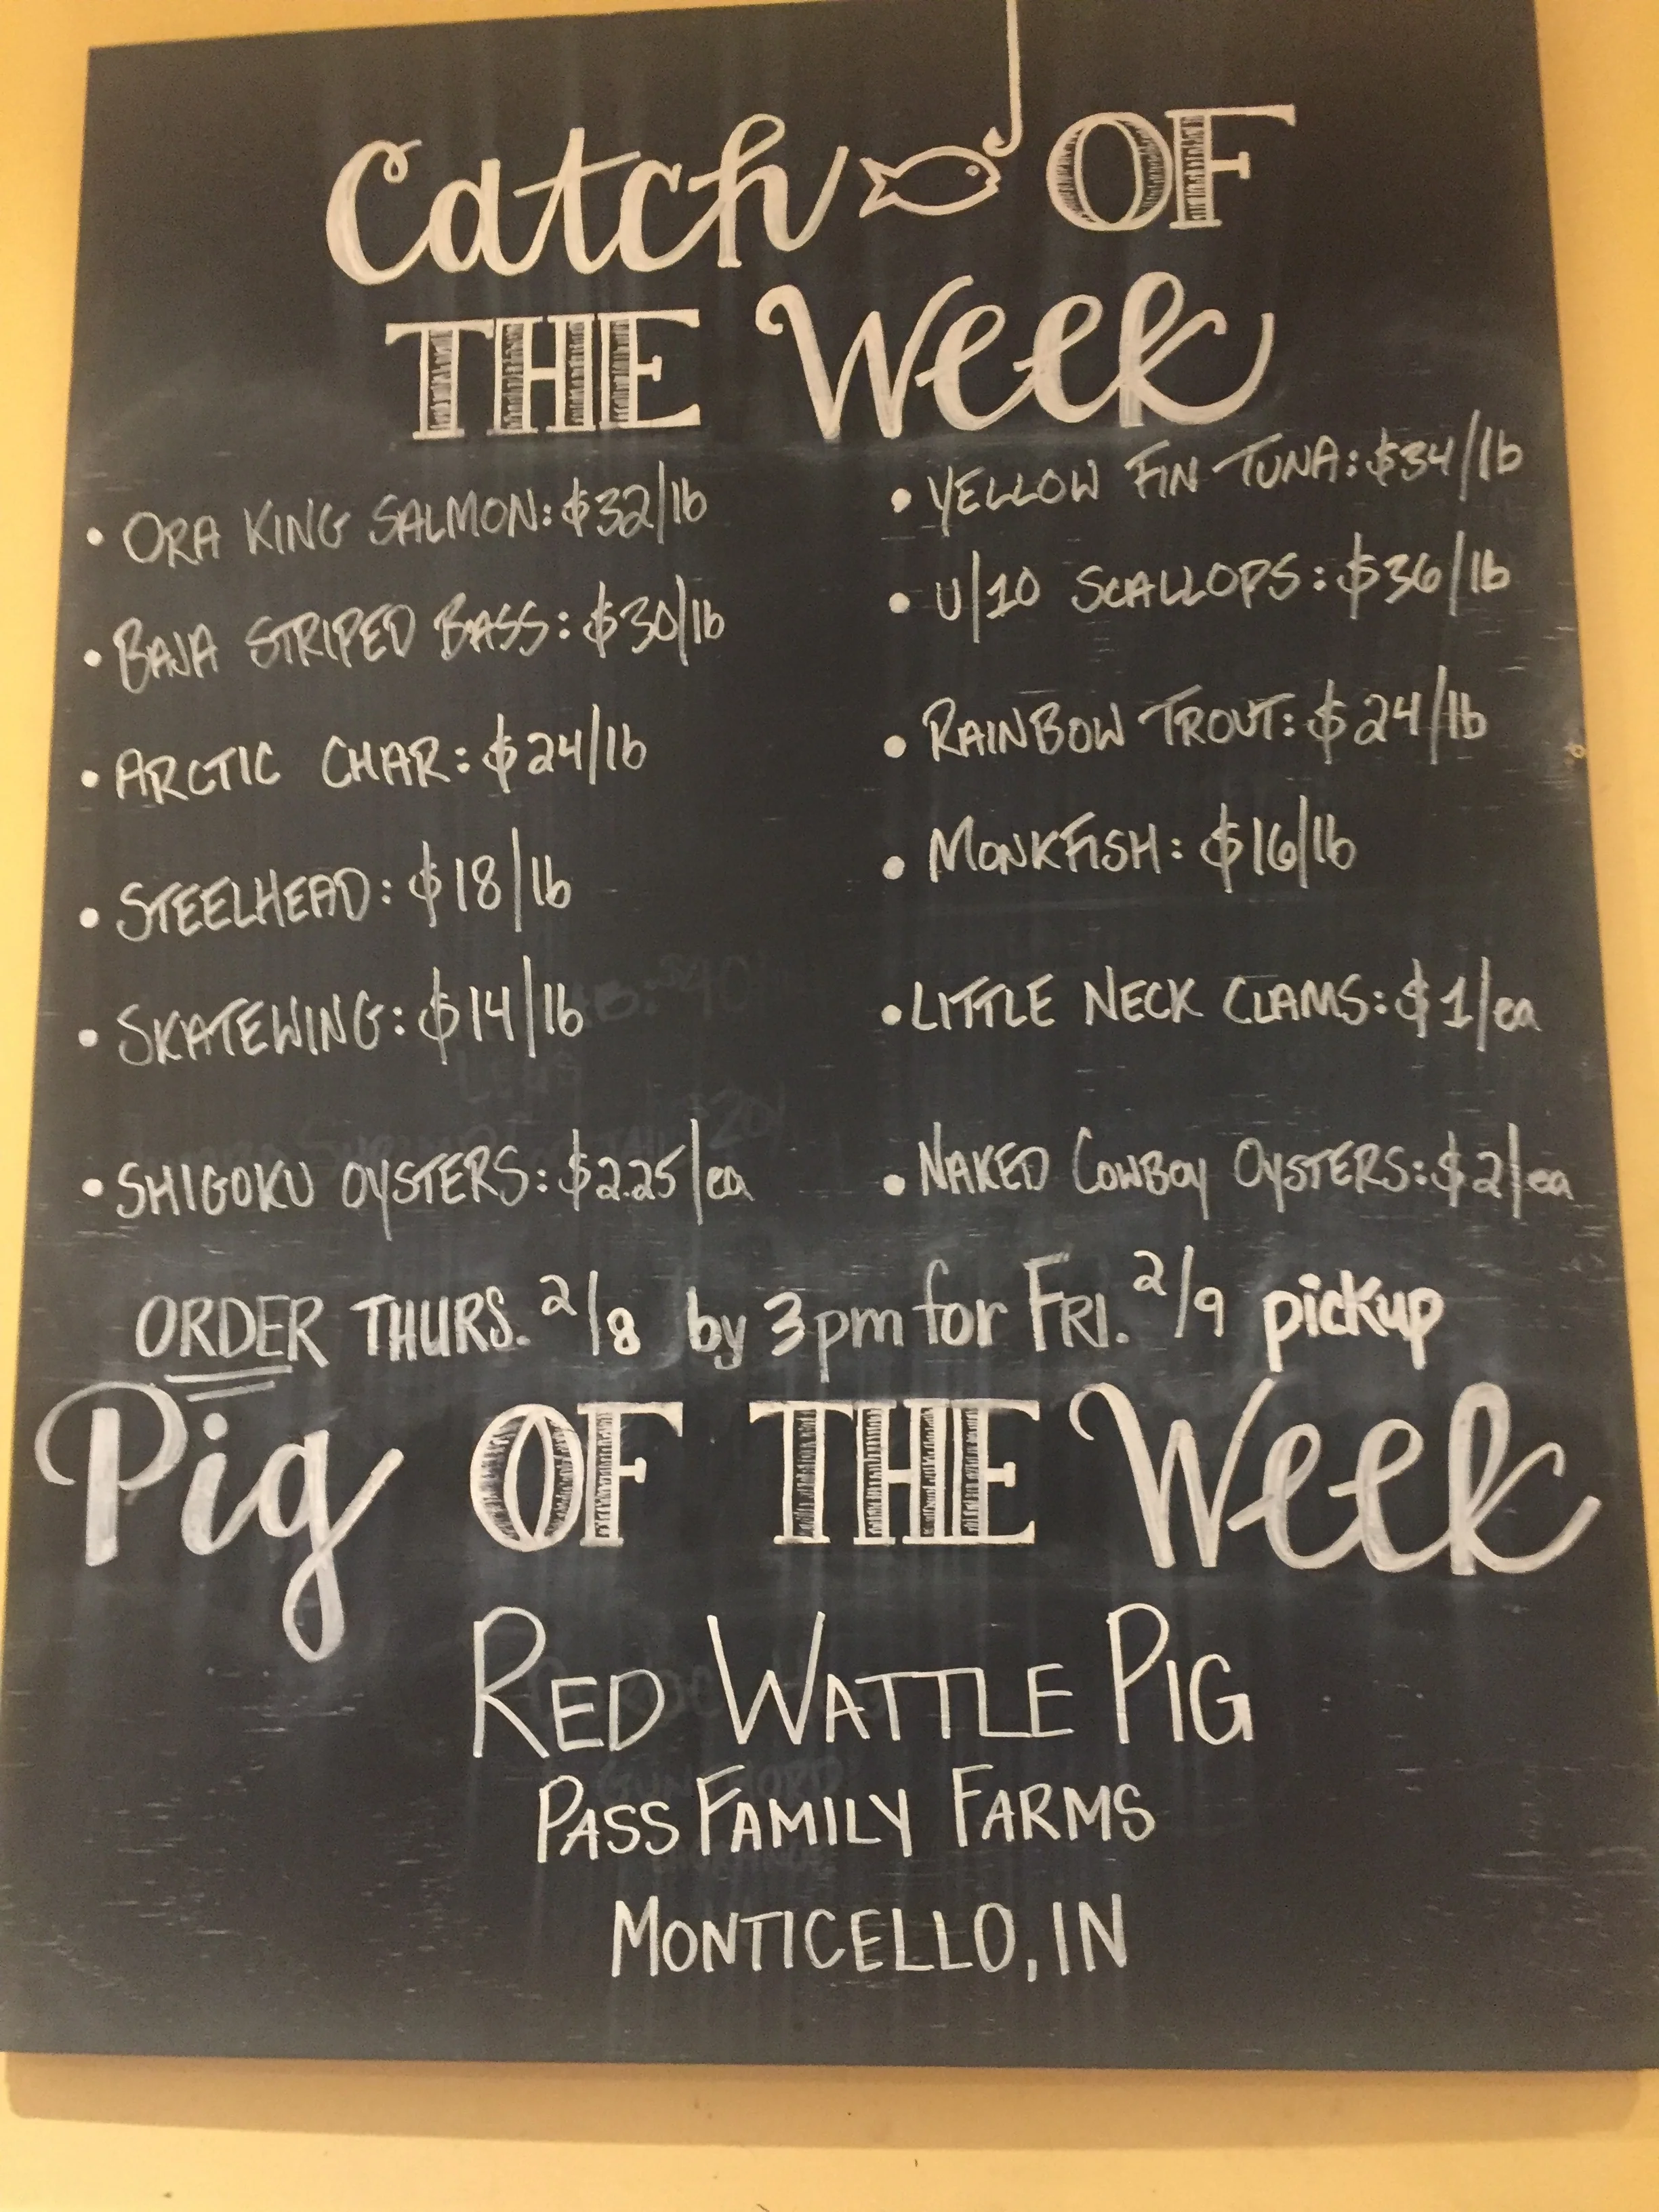 Catch OF
THE Week
• ORA KING SALMON: $32/lb
• BAJA STRIPED BASS: $30/lb
• ARCTIC CHAR: $24/lb
• STEELHEAD: $18/lb
• SKATEWING: $14/lb
• SHIGOKU OYSTERS: $2.25/ea
• YELLOW FIN TUNA: $34/lb
• U/10 SCALLOPS: $36/lb
• RAINBOW TROUT: $24/lb
• MONKFISH: $16/lb
• LITTLE NECK CLAMS: $1/ea
• NAKED COWBOY OYSTERS: $2/ea
ORDER THURS. 2/8 by 3pm for FRI. 2/9 pickup
Pig OF THE Week
RED WATTLE PIG
PASS FAMILY FARMS
MONTICELLO, IN